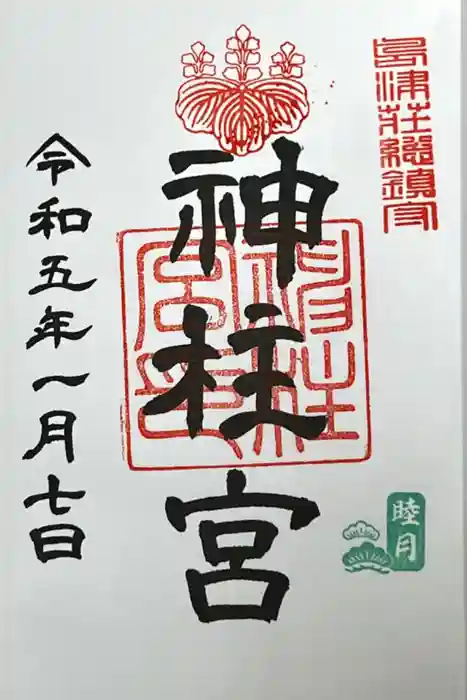 島津荘總鎮守
神柱宮
神柱宮印
睦月
令和五年一月七日